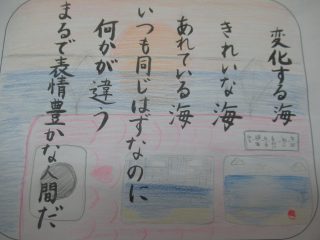 変化する海
きれいな海
あれている海
いつも同じはずなのに
何かが違う
まるで表情豊かな人間だ